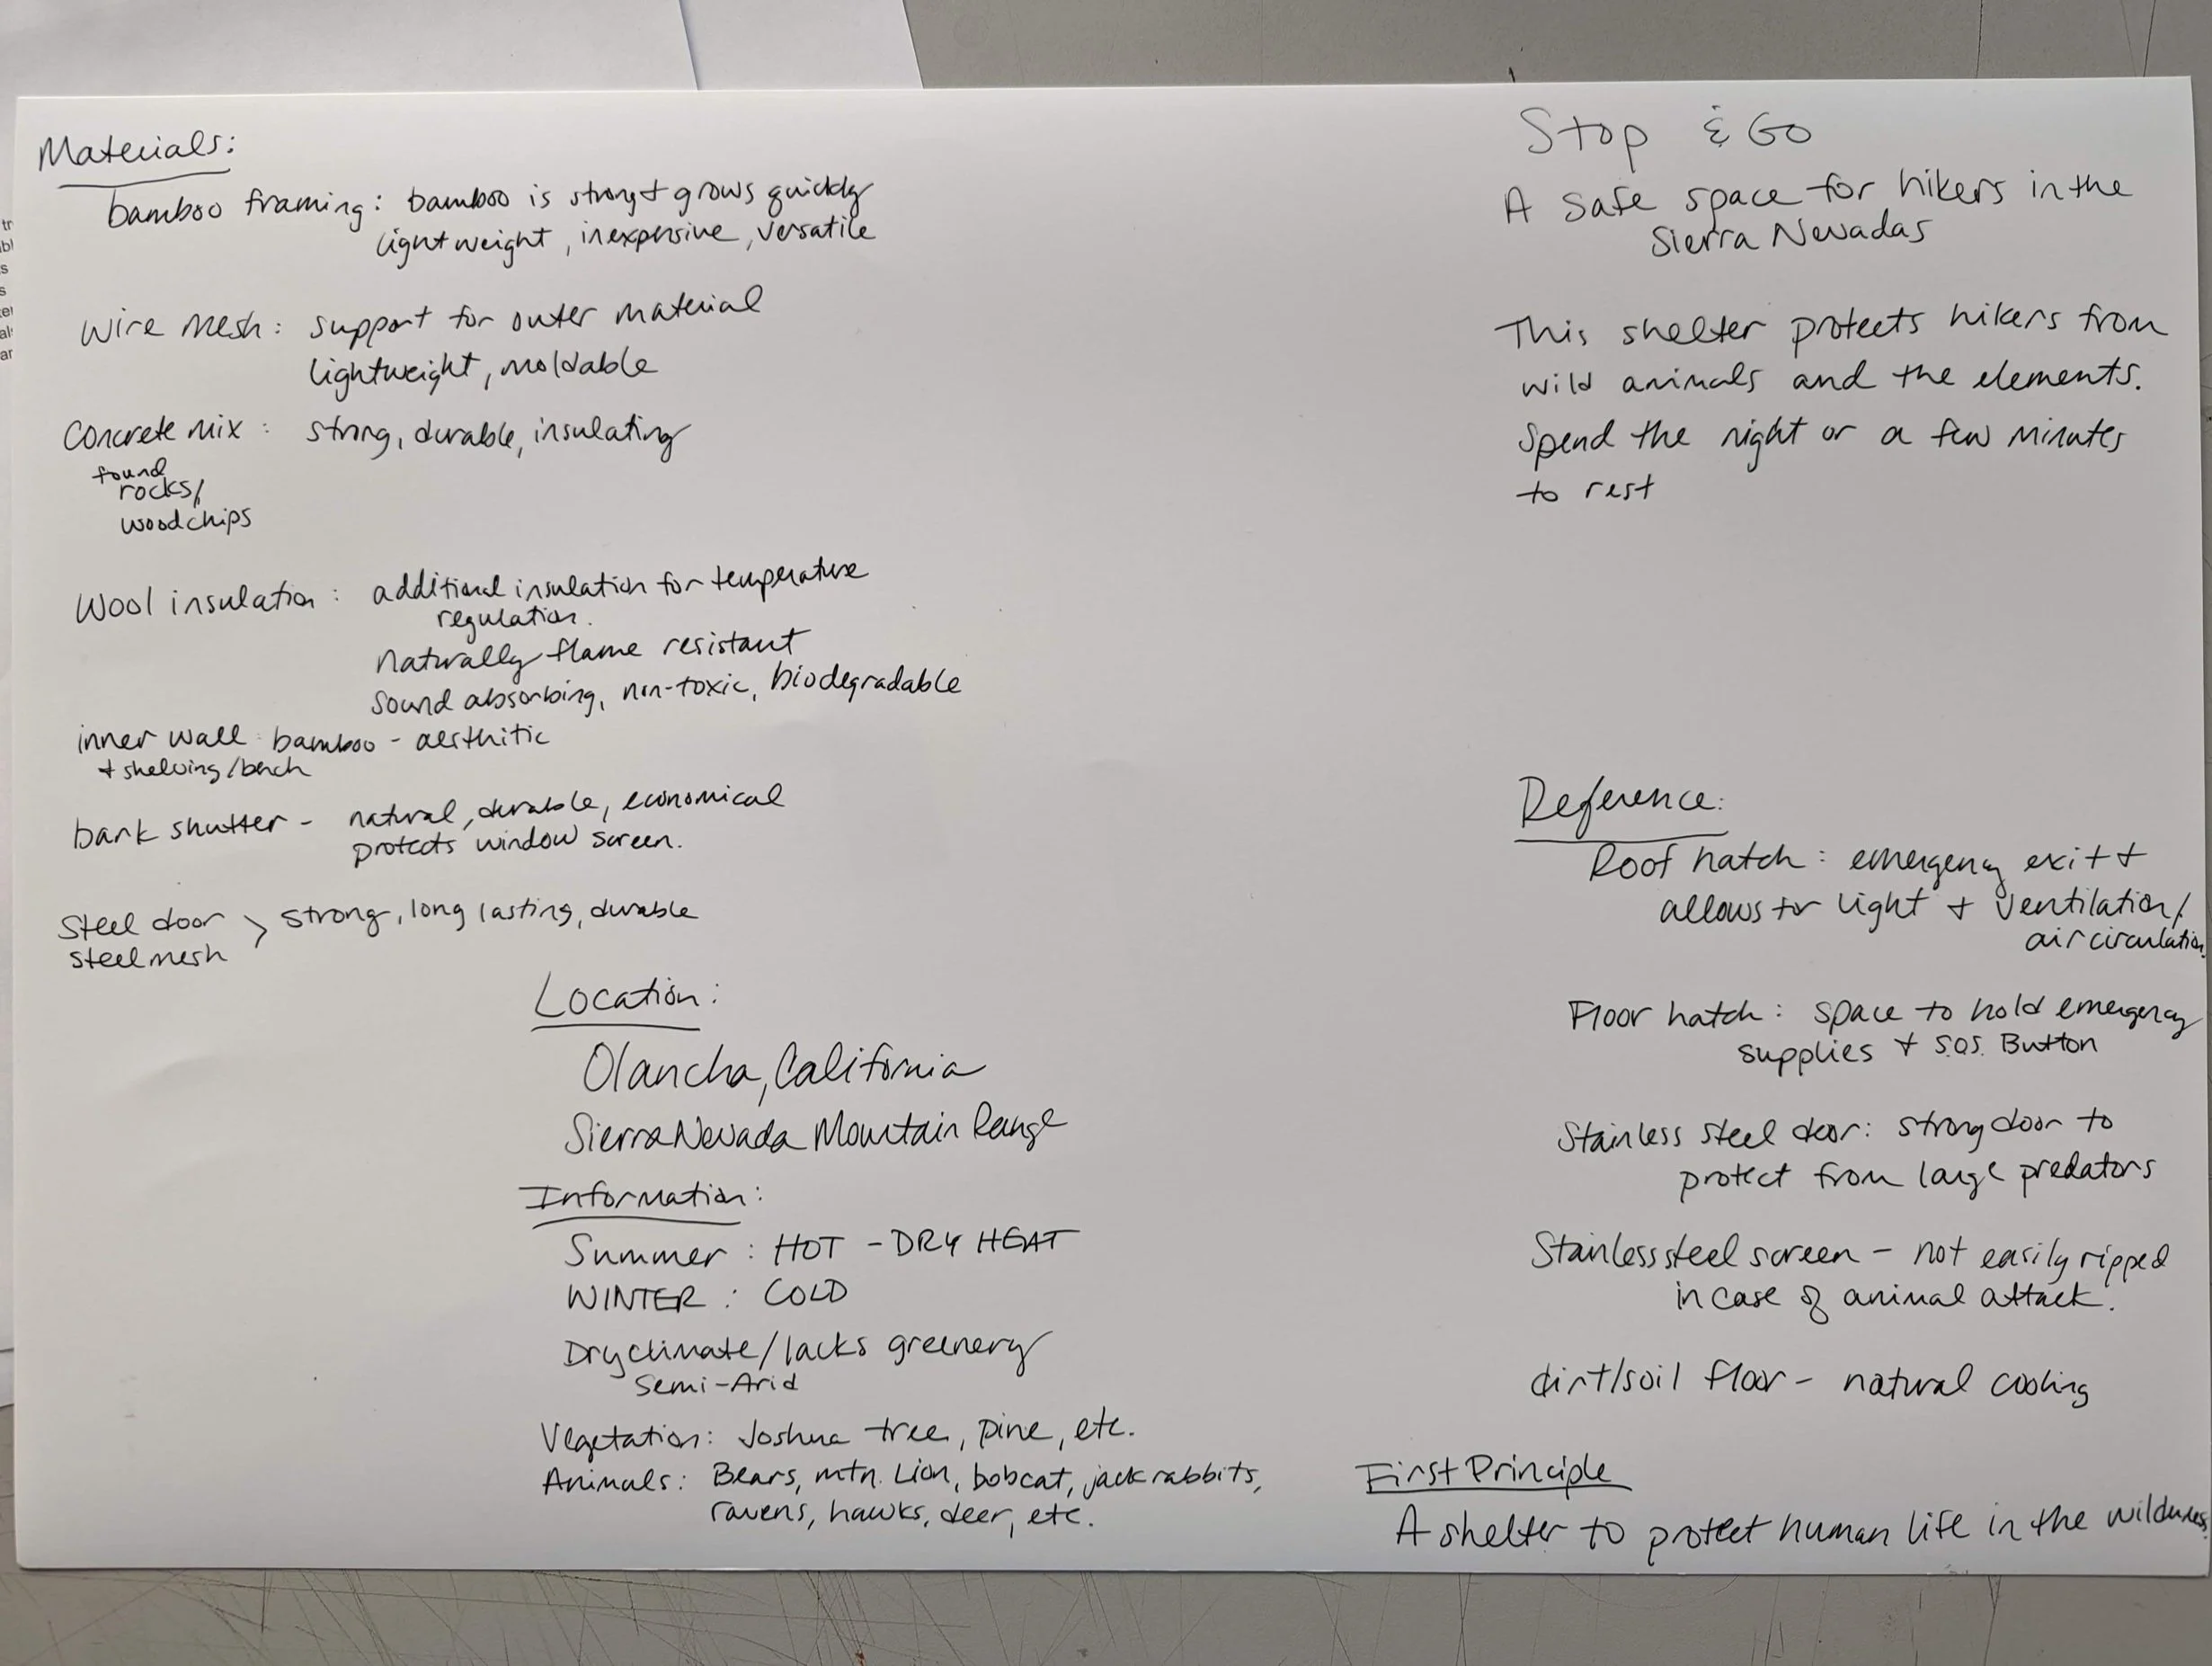 Materials:
bamboo framing: bamboo is strong + grows quickly
lightweight, inexpensive, versatile
Wire Mesh: support for outer material
lightweight, moldable
Concrete mix: strong, durable, insulating
found
rocks/
woodchips
Wool insulation: additional insulation for temperature
regulation.
naturally flame resistant
Sound absorbing, non-toxic, biodegradable
inner wall: bamboo - aesthitic
+ shelving/bench
bark shutter - natural, durable, economical
protects window screen.
Steel door > strong, long lasting, durable
steel mesh
Location:
Olancha, California
Sierra Nevada Mountain Range
Information:
Summer: HOT - DRY HEAT
WINTER: COLD
Dry climate/lacks greenery
Semi-Arid
Vegetation: Joshua tree, pine, etc.
Animals: Bears, mtn. Lion, bobcat, jack rabbits,
ravens, hawks, deer, etc.
Stop & Go
A safe space for hikers in the
Sierra Nevadas
This shelter protects hikers from
wild animals and the elements.
Spend the night or a few minutes
to rest
Reference:
Roof hatch: emergency exit +
allows for light + ventilation/
air circulation.
Floor hatch: space to hold emergency
supplies + S.O.S. Button
Stainless steel door: strong door to
protect from large predators
Stainless steel screen - not easily ripped
in case of animal attack.
dirt/soil floor - natural cooling
First Principle
A shelter to protect human life in the wilderness.